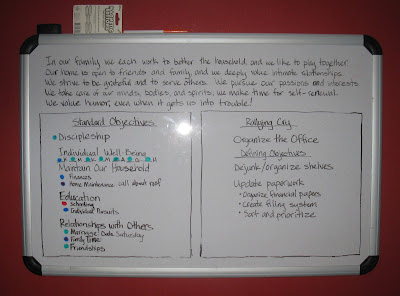 In our family we each work to better the household, and we like to play together.
Our home is open to friends and family, and we deeply value intimate relationships.
We strive to be grateful and to serve others. We pursue our passions and interests.
We take care of our minds, bodies, and spirits; we make time for self-renewal.
We value humor, even when it gets us into trouble!
Standard Objectives
Discipleship
Individual Well-Being
Maintain Our Household
Finances
Home Maintenance call about roof
Education
Schooling
Individual Pursuits
Relationships with Others
Marriage Date Saturday
Family Time
Friendships
Rallying Cry
Organize the Office
Defining Objectives
Dejunk/organize shelves
Update paperwork
• Organize financial papers
• Create filing system
• Sort and prioritize